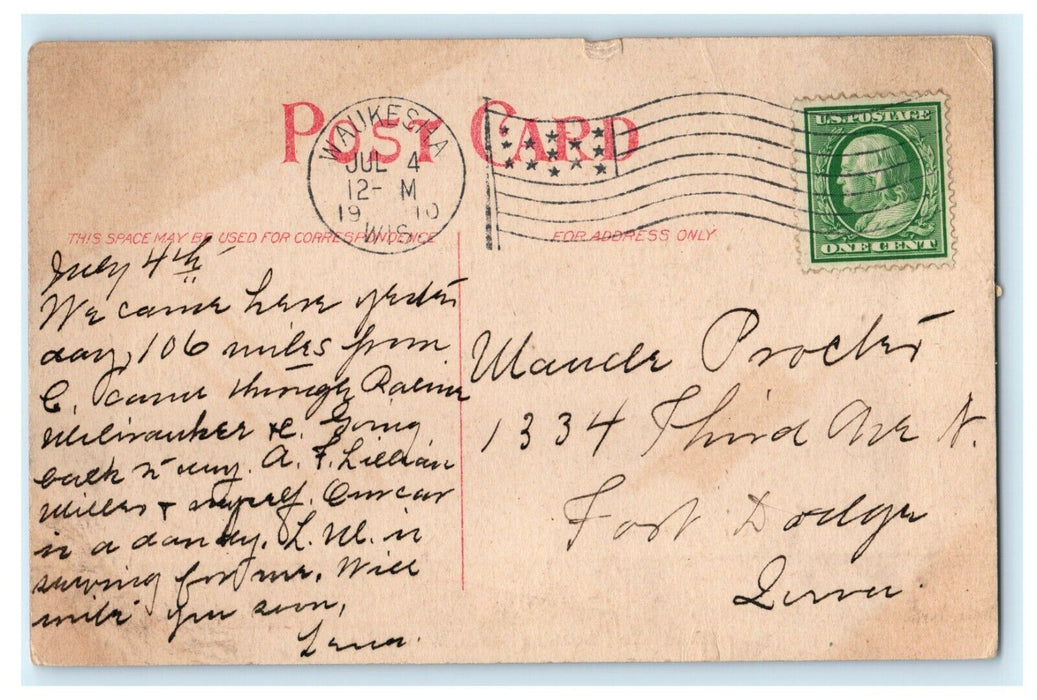 POST CARD
WAUKESHA
JUL 4
12- M
19 10
WIS.
U.S. POSTAGE
ONE CENT
THIS SPACE MAY BE USED FOR CORRESPONDENCE
FOR ADDRESS ONLY.
July 4th
We came here yester
day, 106 miles from
C. came through Racine
Milwaukee &c. Going
back to day. A. F. Lillian
Miller & myself. Our car
is a dandy. L. M. is
sewing for me. Will
write you soon,
Lena.
Maude Procter
1334 Third Ave N.
Fort Dodge
Iowa.